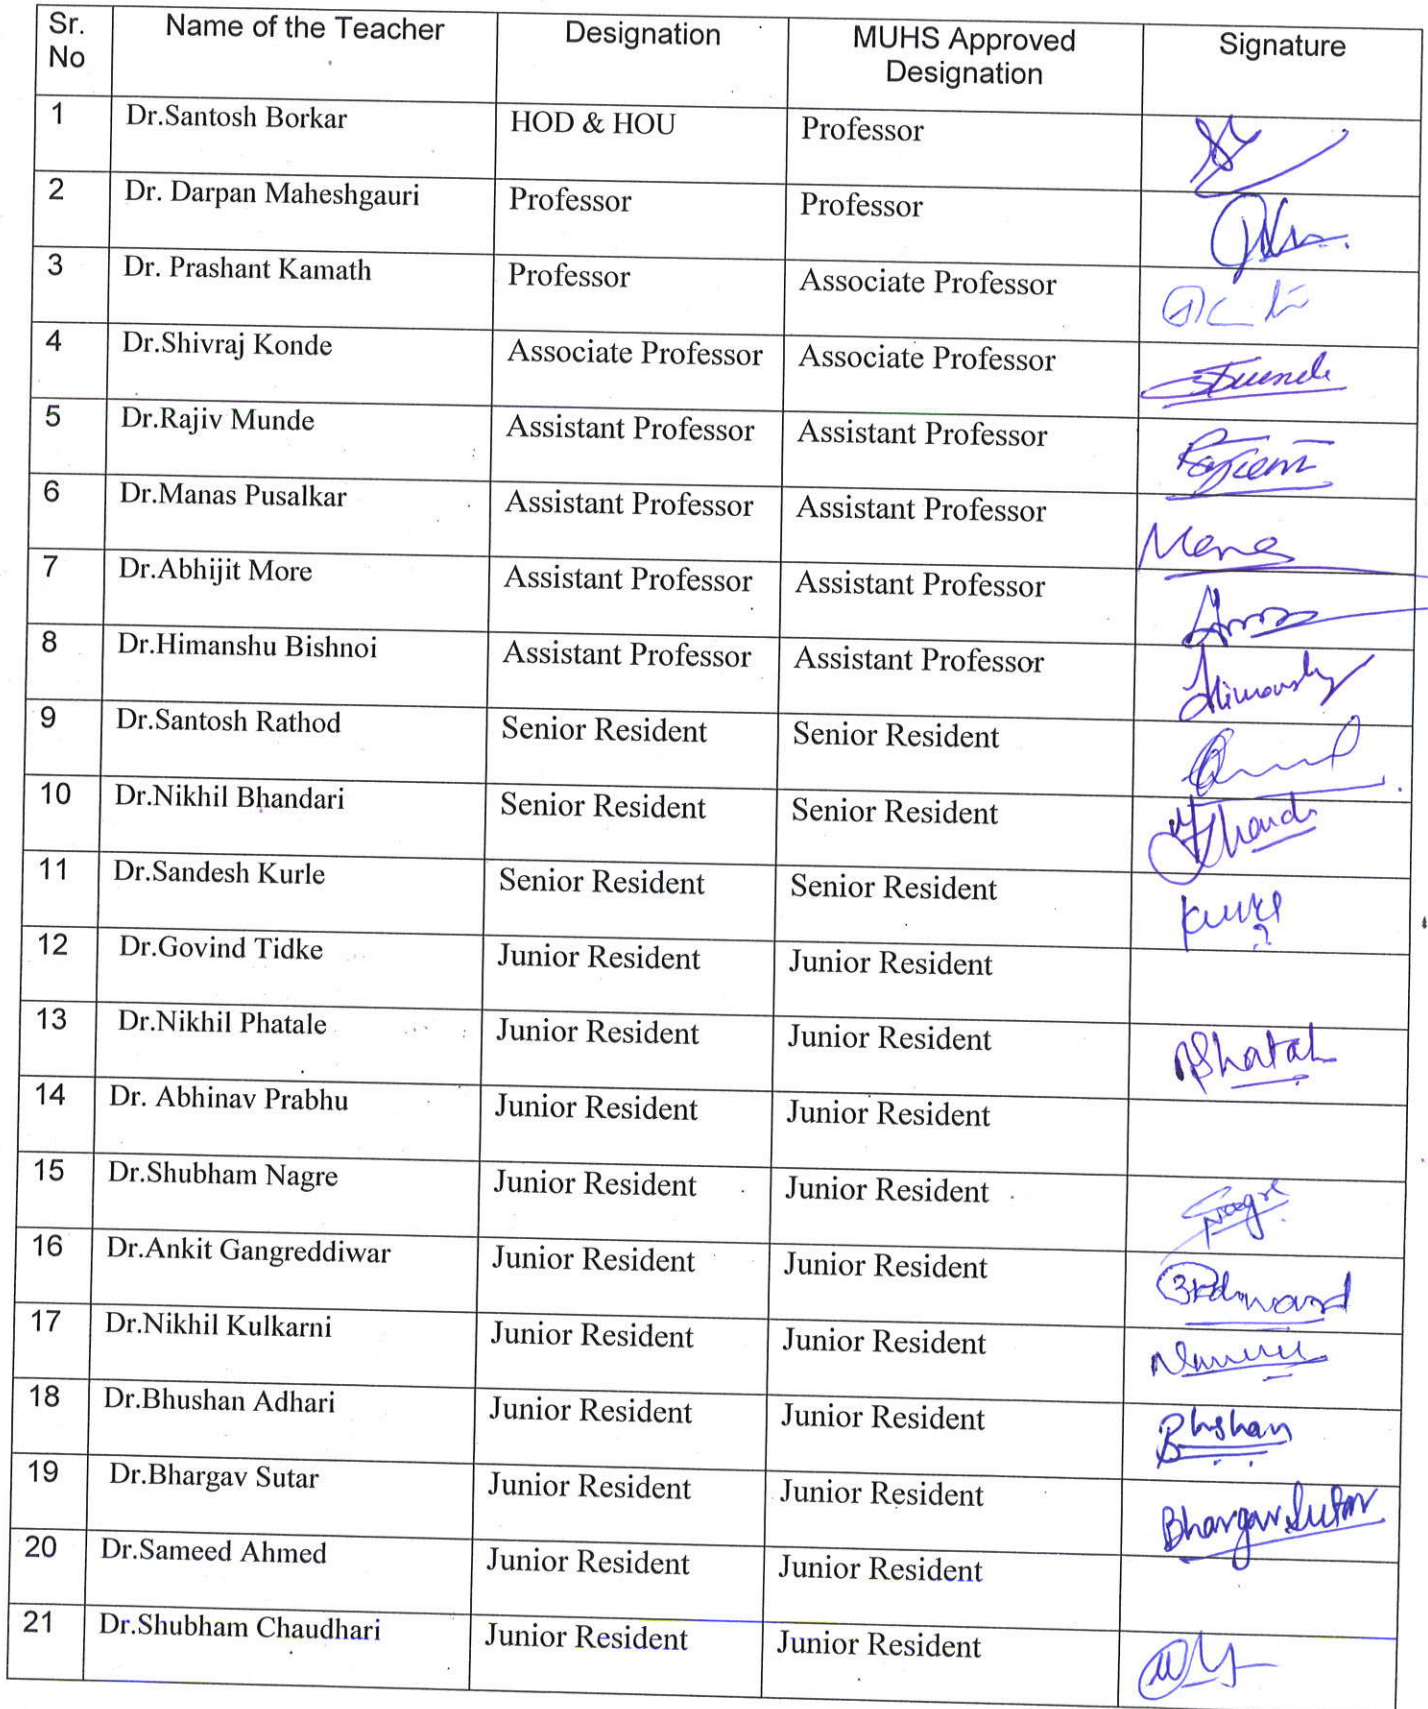 Sr. No Name of the Teacher Designation MUHS Approved Designation Signature
1 Dr.Santosh Borkar HOD & HOU Professor
2 Dr. Darpan Maheshgauri Professor Professor
3 Dr. Prashant Kamath Professor Associate Professor
4 Dr.Shivraj Konde Associate Professor Associate Professor
5 Dr.Rajiv Munde Assistant Professor Assistant Professor
6 Dr.Manas Pusalkar Assistant Professor Assistant Professor
7 Dr.Abhijit More Assistant Professor Assistant Professor
8 Dr.Himanshu Bishnoi Assistant Professor Assistant Professor
9 Dr.Santosh Rathod Senior Resident Senior Resident
10 Dr.Nikhil Bhandari Senior Resident Senior Resident
11 Dr.Sandesh Kurle Senior Resident Senior Resident
12 Dr.Govind Tidke Junior Resident Junior Resident
13 Dr.Nikhil Phatale Junior Resident Junior Resident
14 Dr. Abhinav Prabhu Junior Resident Junior Resident
15 Dr.Shubham Nagre Junior Resident Junior Resident Nagre
16 Dr.Ankit Gangreddiwar Junior Resident Junior Resident
17 Dr.Nikhil Kulkarni Junior Resident Junior Resident
18 Dr.Bhushan Adhari Junior Resident Junior Resident Bhshan
19 Dr.Bhargav Sutar Junior Resident Junior Resident Bhargav Sutar
20 Dr.Sameed Ahmed Junior Resident Junior Resident
21 Dr.Shubham Chaudhari Junior Resident Junior Resident